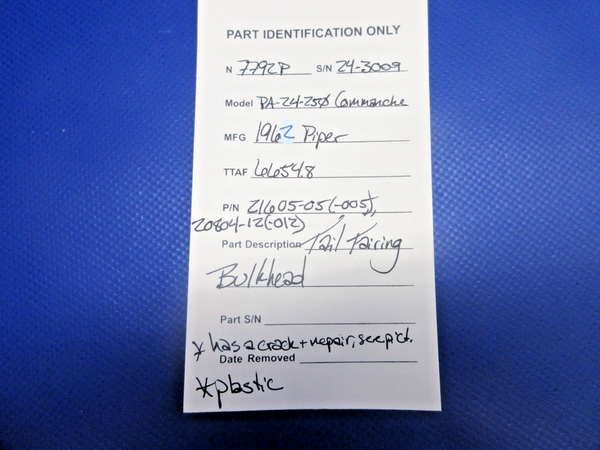 PART IDENTIFICATION ONLY
N 7792P S/N 24-3009
Model PA-24-250 Commanche
MFG 1962 Piper
TTAF 6654.8
P/N 21605-05 (-005),
20804-12 (-012)
Part Description Tail Fairing
Bulkhead
Part S/N
* has a crack + repair, see pict.
Date Removed
* plastic